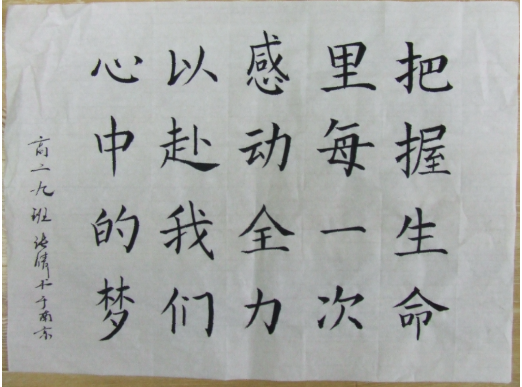 把握生命
里每一次
感动全力
以赴我们
心中的梦
高二九班 张倩书于南京